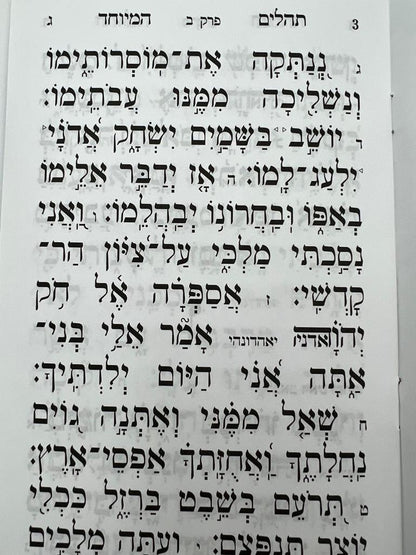 3 תהלים פרק ב המיוחד ג
ג נְֽנַתְּקָה אֶת־מֽוֹסְרוֹתֵ֑ימוֹ
וְנַשְׁלִ֖יכָה מִמֶּ֣נּוּ עֲבֹתֵֽימוֹ׃
ד יוֹשֵׁ֣ב בַּשָּׁמַ֣יִם יִשְׂחָ֑ק אֲ֝דֹנָ֗י
יִלְעַג־לָֽמוֹ׃ ה אָ֤ז יְדַבֵּ֣ר אֵלֵ֣ימוֹ
בְאַפּ֑וֹ וּֽבַחֲרוֹנ֥וֹ יְבַהֲלֵֽמוֹ׃ ו וַ֭אֲנִי
נָסַ֣כְתִּי מַלְכִּ֑י עַל־צִ֝יּ֗וֹן הַר־
קָדְשִֽׁי׃ ז אֲסַפְּרָ֗ה אֶֽ֫ל חֹ֥ק
יְהֹוָ֗ה אדני יאהדונהי אָמַ֘ר אֵלַ֥י בְּנִי־
אַ֑תָּה אֲ֝נִ֗י הַיּ֥וֹם יְלִדְתִּֽיךָ׃
ח שְׁאַ֤ל מִמֶּ֗נִּי וְאֶתְּנָ֣ה ג֭וֹיִם
נַחֲלָתֶ֑ךָ וַ֝אֲחֻזָּתְךָ֗ אַפְסֵי־אָֽרֶץ׃
ט תְּ֭רֹעֵם בְּשֵׁ֣בֶט בַּרְזֶ֑ל כִּכְלִ֖י
יוֹצֵ֣ר תְּנַפְּצֵֽם׃ י וְ֭עַתָּה מְלָכִ֣ים